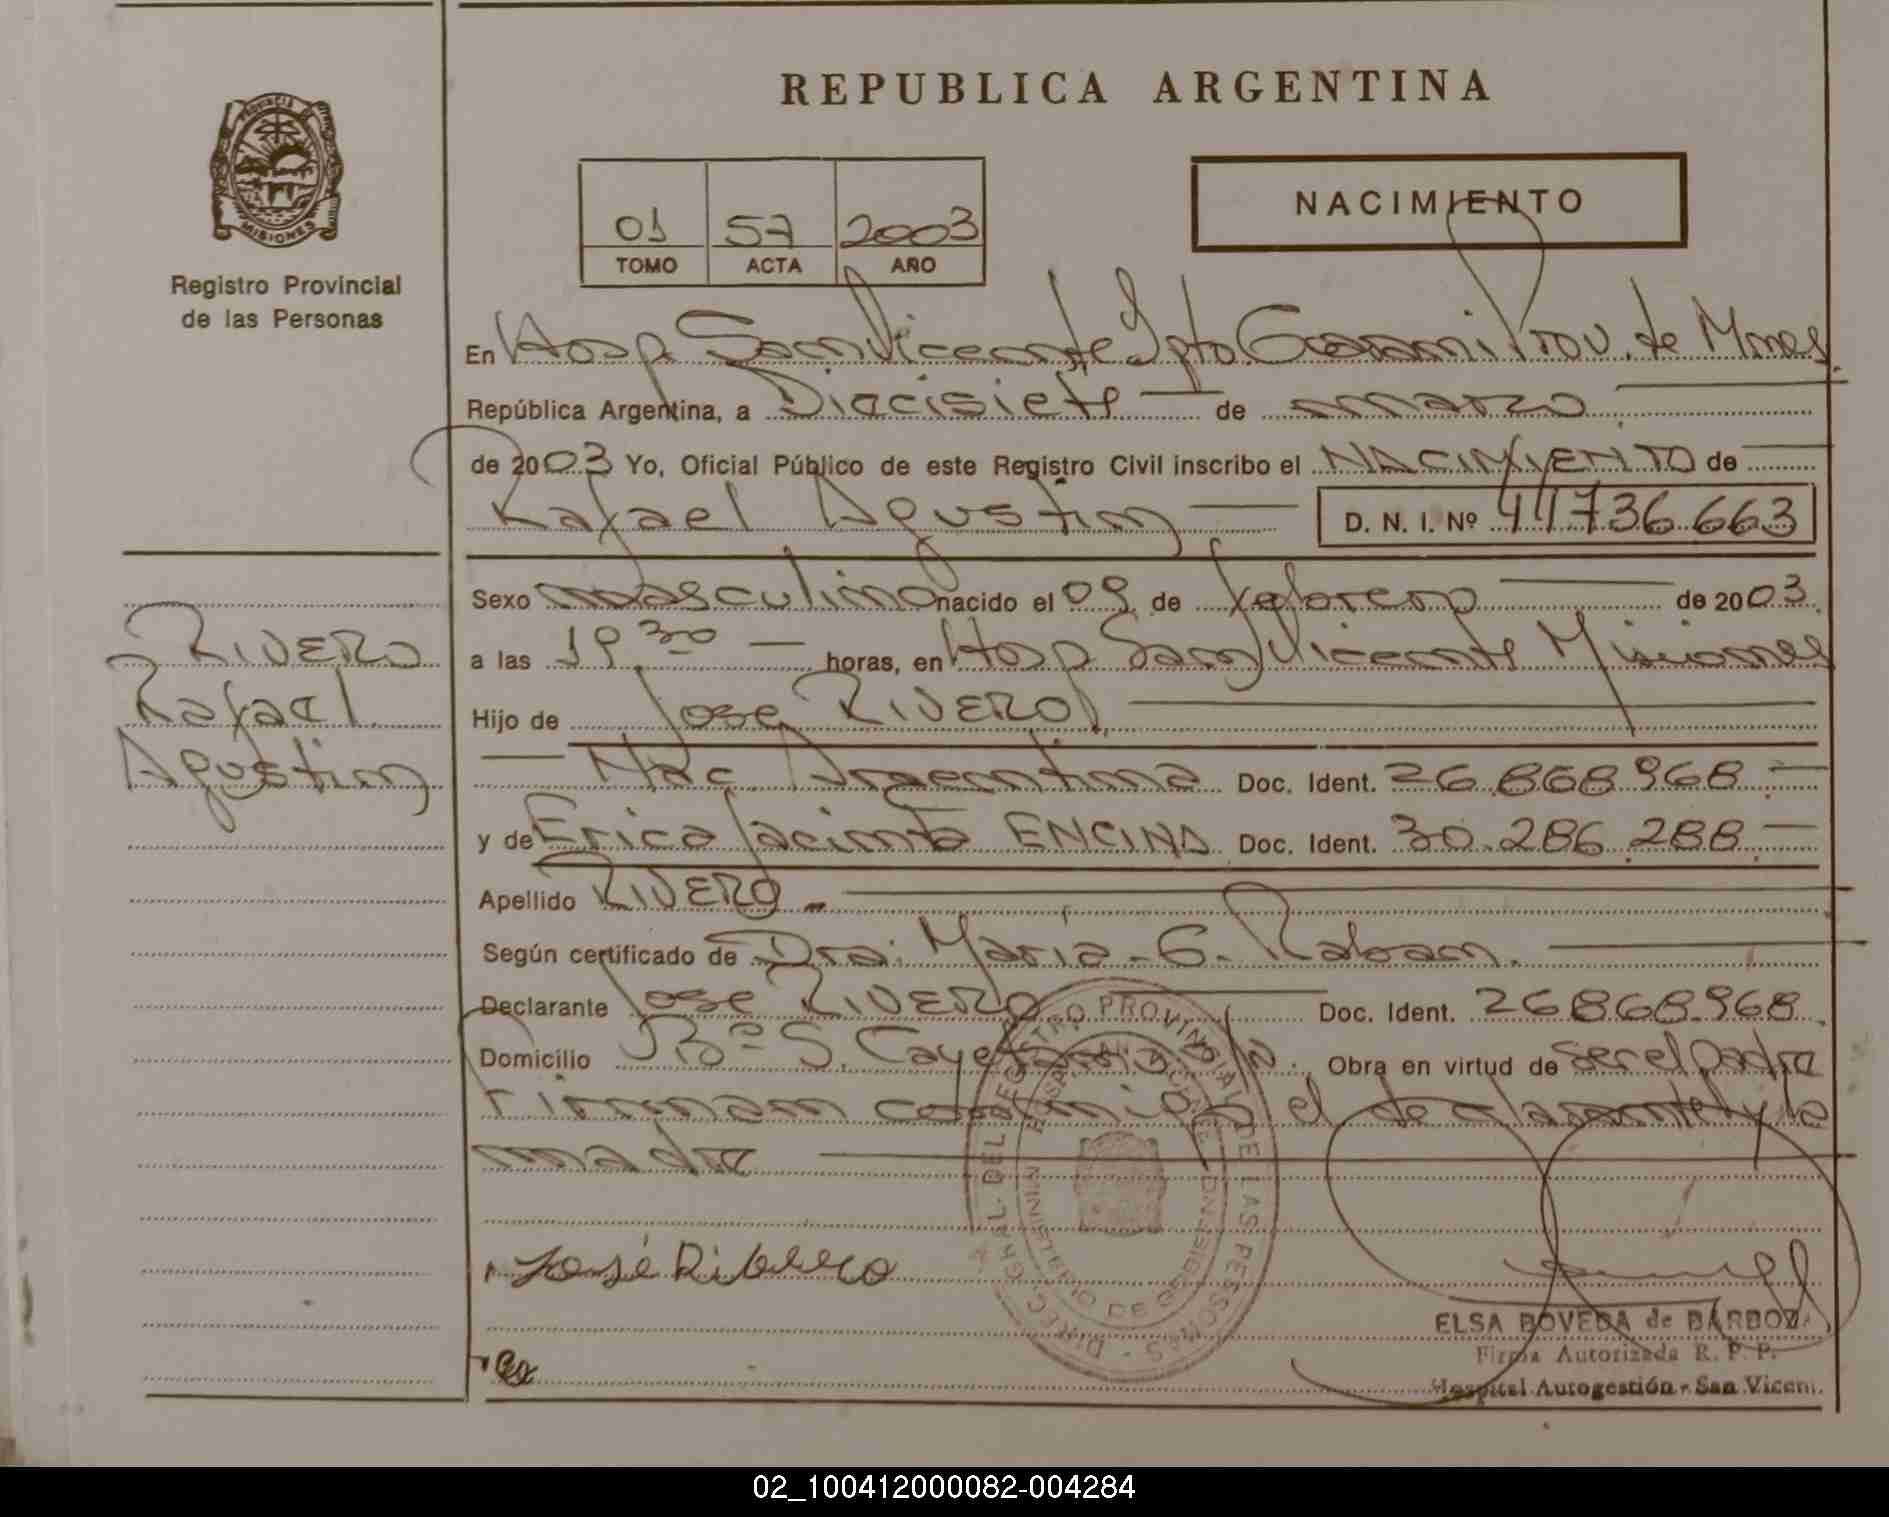 REPUBLICA ARGENTINA
PROVINCIA
MISIONES
Registro Provincial
de las Personas
01 57 2003
TOMO ACTA AÑO
NACIMIENTO
En Hosp San Vicente Dpto Guarani Prov. de Mnes.
República Argentina, a Diecisiete de marzo
de 2003 Yo, Oficial Público de este Registro Civil inscribo el NACIMIENTO de
Rafael Agustin D. N. I. Nº 44736.663
Sexo masculino nacido el 09 de febrero de 2003
a las 19 30 horas, en Hosp San Vicente Misiones
Hijo de Jose RIVERO
Nac. Argentina Doc. Ident. 26.868.968
y de Erica Jacinta ENCINA Doc. Ident. 30.286.288
Apellido RIVERO
Según certificado de Dra. Maria G. Raban.
Declarante Jose RIVERO Doc. Ident. 26868.968
Domicilio Bº S. Cayetano S/N. Obra en virtud de ser el Padre
Firman conmigo el declarante y la
madre
RIVERO
Rafael
Agustin
José Ribero
DIREC. GRAL. DEL REGISTRO PROVINCIAL DE LAS PERSONAS
MINISTERIO DE
ELSA BOVEDA de BARBOZA
Firma Autorizada R. P. P.
Hospital Autogestión - San Vicen.
02_100412000082-004284